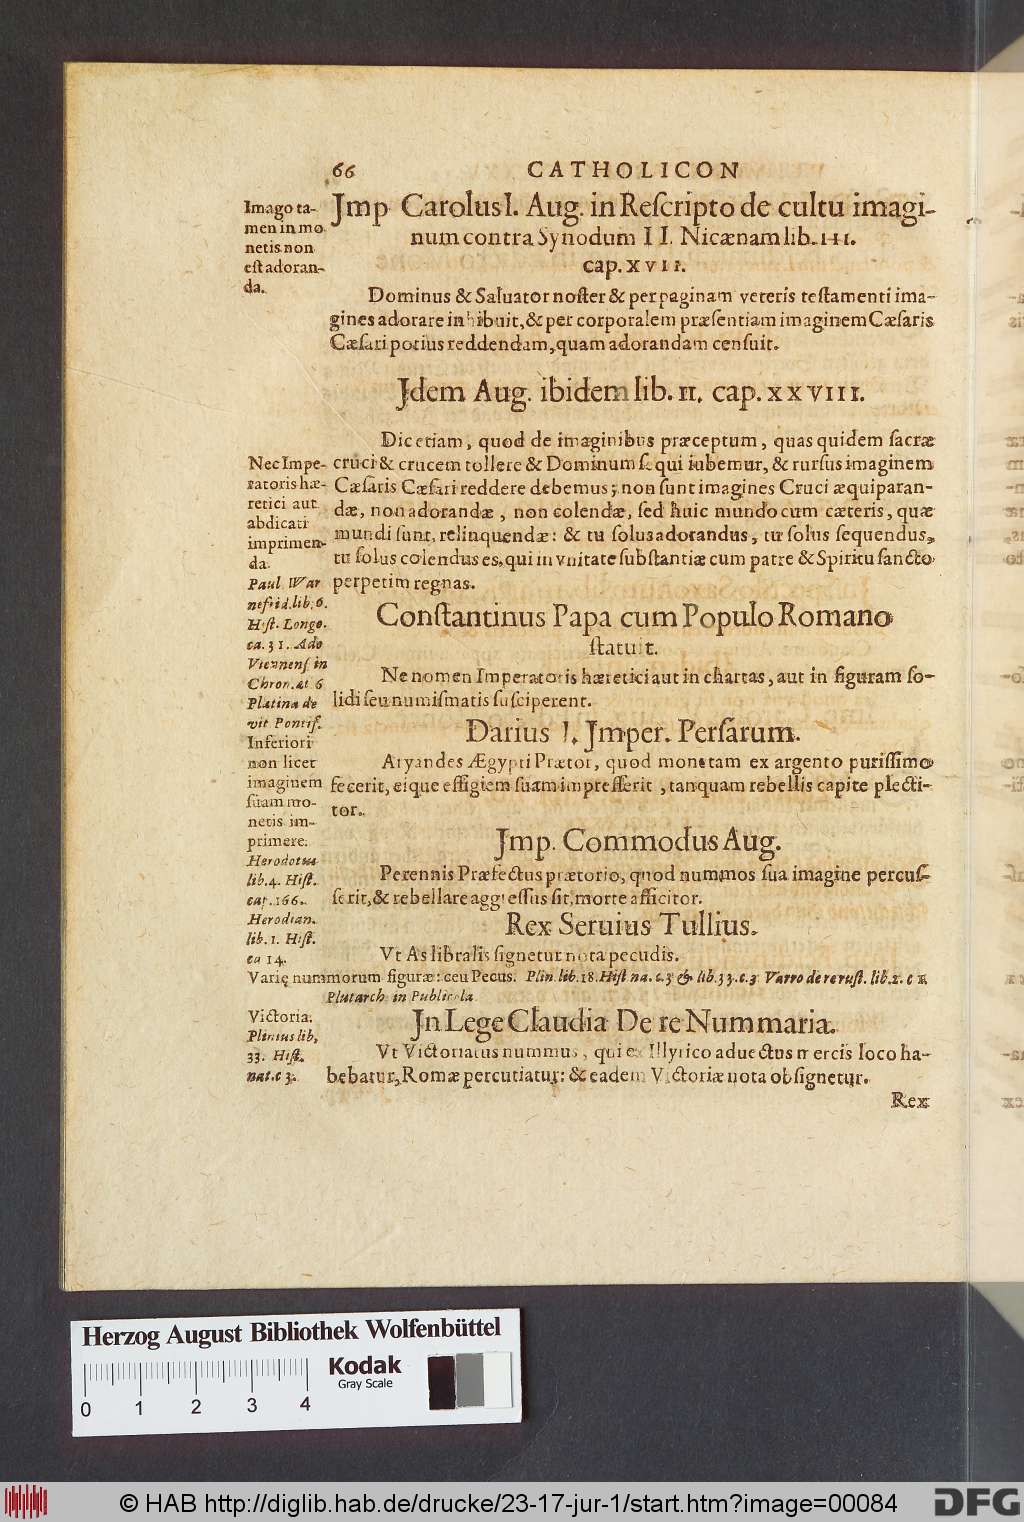 66 CATHOLICON
Imago ta-
men in mo
netis non
est adoran-
da.
Jmp Carolus I. Aug. in Rescripto de cultu imagi-
num contra Synodum II. Nicænam lib. III.
cap. XVII.
Dominus & Saluator noster & per paginam veteris testamenti ima-
gines adorare inhibuit, & per corporalem præsentiam imaginem Cæsaris
Cæsari potius reddendam, quam adorandam censuit.
Jdem Aug. ibidem lib. II. cap. XXVIII.
Nec Impe-
ratoris hæ-
retici aut
abdicati
imprimen-
da.
Paul War
nefrid. lib. 6.
Hist. Longo.
ca. 31. Ado
Viennens in
Chron. æt 6
Platina de
vit Pontif.
Dic etiam, quod de imaginibus præceptum, quas quidem sacræ
cruci & crucem tollere & Dominum sequi iubemur, & rursus imaginem
Cæsaris Cæsari reddere debemus; non sunt imagines Cruci æquiparan-
dæ, non adorandæ, non colendæ, sed huic mundo cum cæteris, quæ
mundi sunt, relinquendæ: & tu solus adorandus, tu solus sequendus,
tu solus colendus es, qui in vnitate substantiæ cum patre & Spiritu sancto
perpetim regnas.
Constantinus Papa cum Populo Romano
statuit.
Ne nomen Imperatoris hæretici aut in chartas, aut in figuram so-
lidi seu numismatis susciperent.
Inferiori
non licet
imaginem
suam mo-
netis im-
primere.
Herodotus
lib. 4. Hist.
cap. 166.
Herodian.
lib. 1. Hist.
ca 14.
Darius I. Jmper. Persarum.
Aryandes Ægypti Prætor, quod monetam ex argento purissimo
fecerit, eique effigiem suam impresserit, tanquam rebellis capite plecti-
tor.
Jmp. Commodus Aug.
Perennis Præfectus prætorio, quod nummos sua imagine percus-
serit, & rebellare aggressus sit, morte afficitor.
Rex Seruius Tullius.
Vt As libralis signetur nota pecudis.
Varię nummorum figuræ: ceu Pecus. Plin. lib. 18. Hist na. c. 3 & lib. 33. c. 3 Varro de re rust. lib. 2. c 1.
Plutarch in Publicola
Victoria.
Plinius lib.
33. Hist.
nat. c 3.
Jn Lege Claudia De re Nummaria.
Vt Victoriatus nummus, qui ex Illyrico aduectus mercis loco ha-
bebatur, Romæ percutiatur: & eadem Victoriæ nota obsignetur.
Rex
Herzog August Bibliothek Wolfenbüttel
Kodak
Gray Scale
0 1 2 3 4
© HAB http://diglib.hab.de/drucke/23-17-jur-1/start.htm?image=00084
DFG